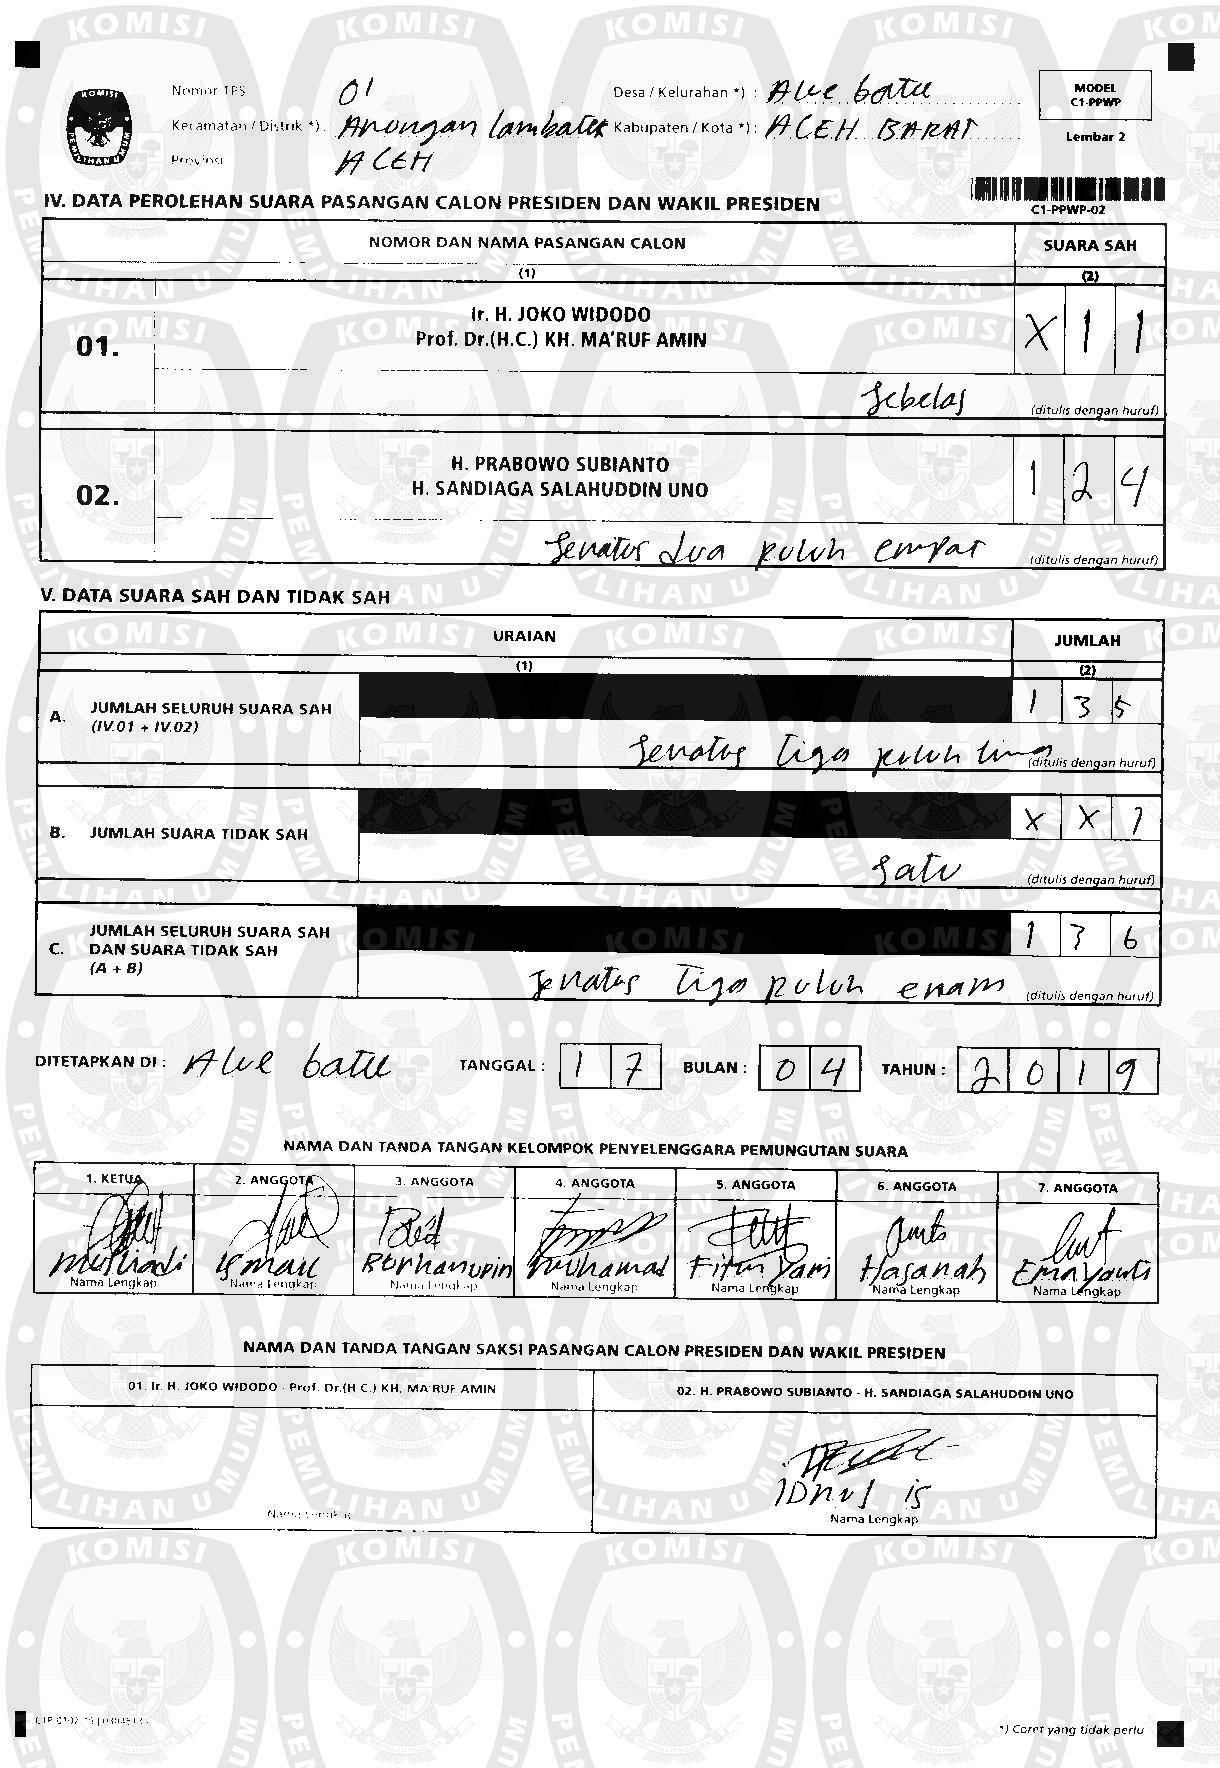 Nomor TPS 01 Desa / Kelurahan *) : Alue batu
Kecamatan / Distrik *) : Arongan Lambalek Kabupaten / Kota *) : ACEH BARAT
Provinsi ACEH
MODEL
C1-PPWP
Lembar 2
C1-PPWP-02
IV. DATA PEROLEHAN SUARA PASANGAN CALON PRESIDEN DAN WAKIL PRESIDEN
NOMOR DAN NAMA PASANGAN CALON SUARA SAH
(1) (2)
01. Ir. H. JOKO WIDODO
Prof. Dr.(H.C.) KH. MA'RUF AMIN
X 1 1
Sebelas (ditulis dengan huruf)
02. H. PRABOWO SUBIANTO
H. SANDIAGA SALAHUDDIN UNO
1 2 4
Seratus dua puluh empat (ditulis dengan huruf)
V. DATA SUARA SAH DAN TIDAK SAH
URAIAN JUMLAH
(1) (2)
A. JUMLAH SELURUH SUARA SAH
(IV.01 + IV.02)
1 3 5
Seratus tiga puluh lima (ditulis dengan huruf)
B. JUMLAH SUARA TIDAK SAH
X X 1
Satu (ditulis dengan huruf)
C. JUMLAH SELURUH SUARA SAH
DAN SUARA TIDAK SAH
(A + B)
1 3 6
Seratus tiga puluh enam (ditulis dengan huruf)
DITETAPKAN DI : Alue batu TANGGAL : 1 7 BULAN : 0 4 TAHUN : 2 0 1 9
NAMA DAN TANDA TANGAN KELOMPOK PENYELENGGARA PEMUNGUTAN SUARA
1. KETUA 2. ANGGOTA 3. ANGGOTA 4. ANGGOTA 5. ANGGOTA 6. ANGGOTA 7. ANGGOTA
Hasanah
Nama Lengkap Nama Lengkap Nama Lengkap Nama Lengkap Nama Lengkap Nama Lengkap Nama Lengkap
NAMA DAN TANDA TANGAN SAKSI PASANGAN CALON PRESIDEN DAN WAKIL PRESIDEN
01. Ir. H. JOKO WIDODO - Prof. Dr.(H.C.) KH. MA'RUF AMIN 02. H. PRABOWO SUBIANTO - H. SANDIAGA SALAHUDDIN UNO
Nama Lengkap Nama Lengkap
*) Coret yang tidak perlu